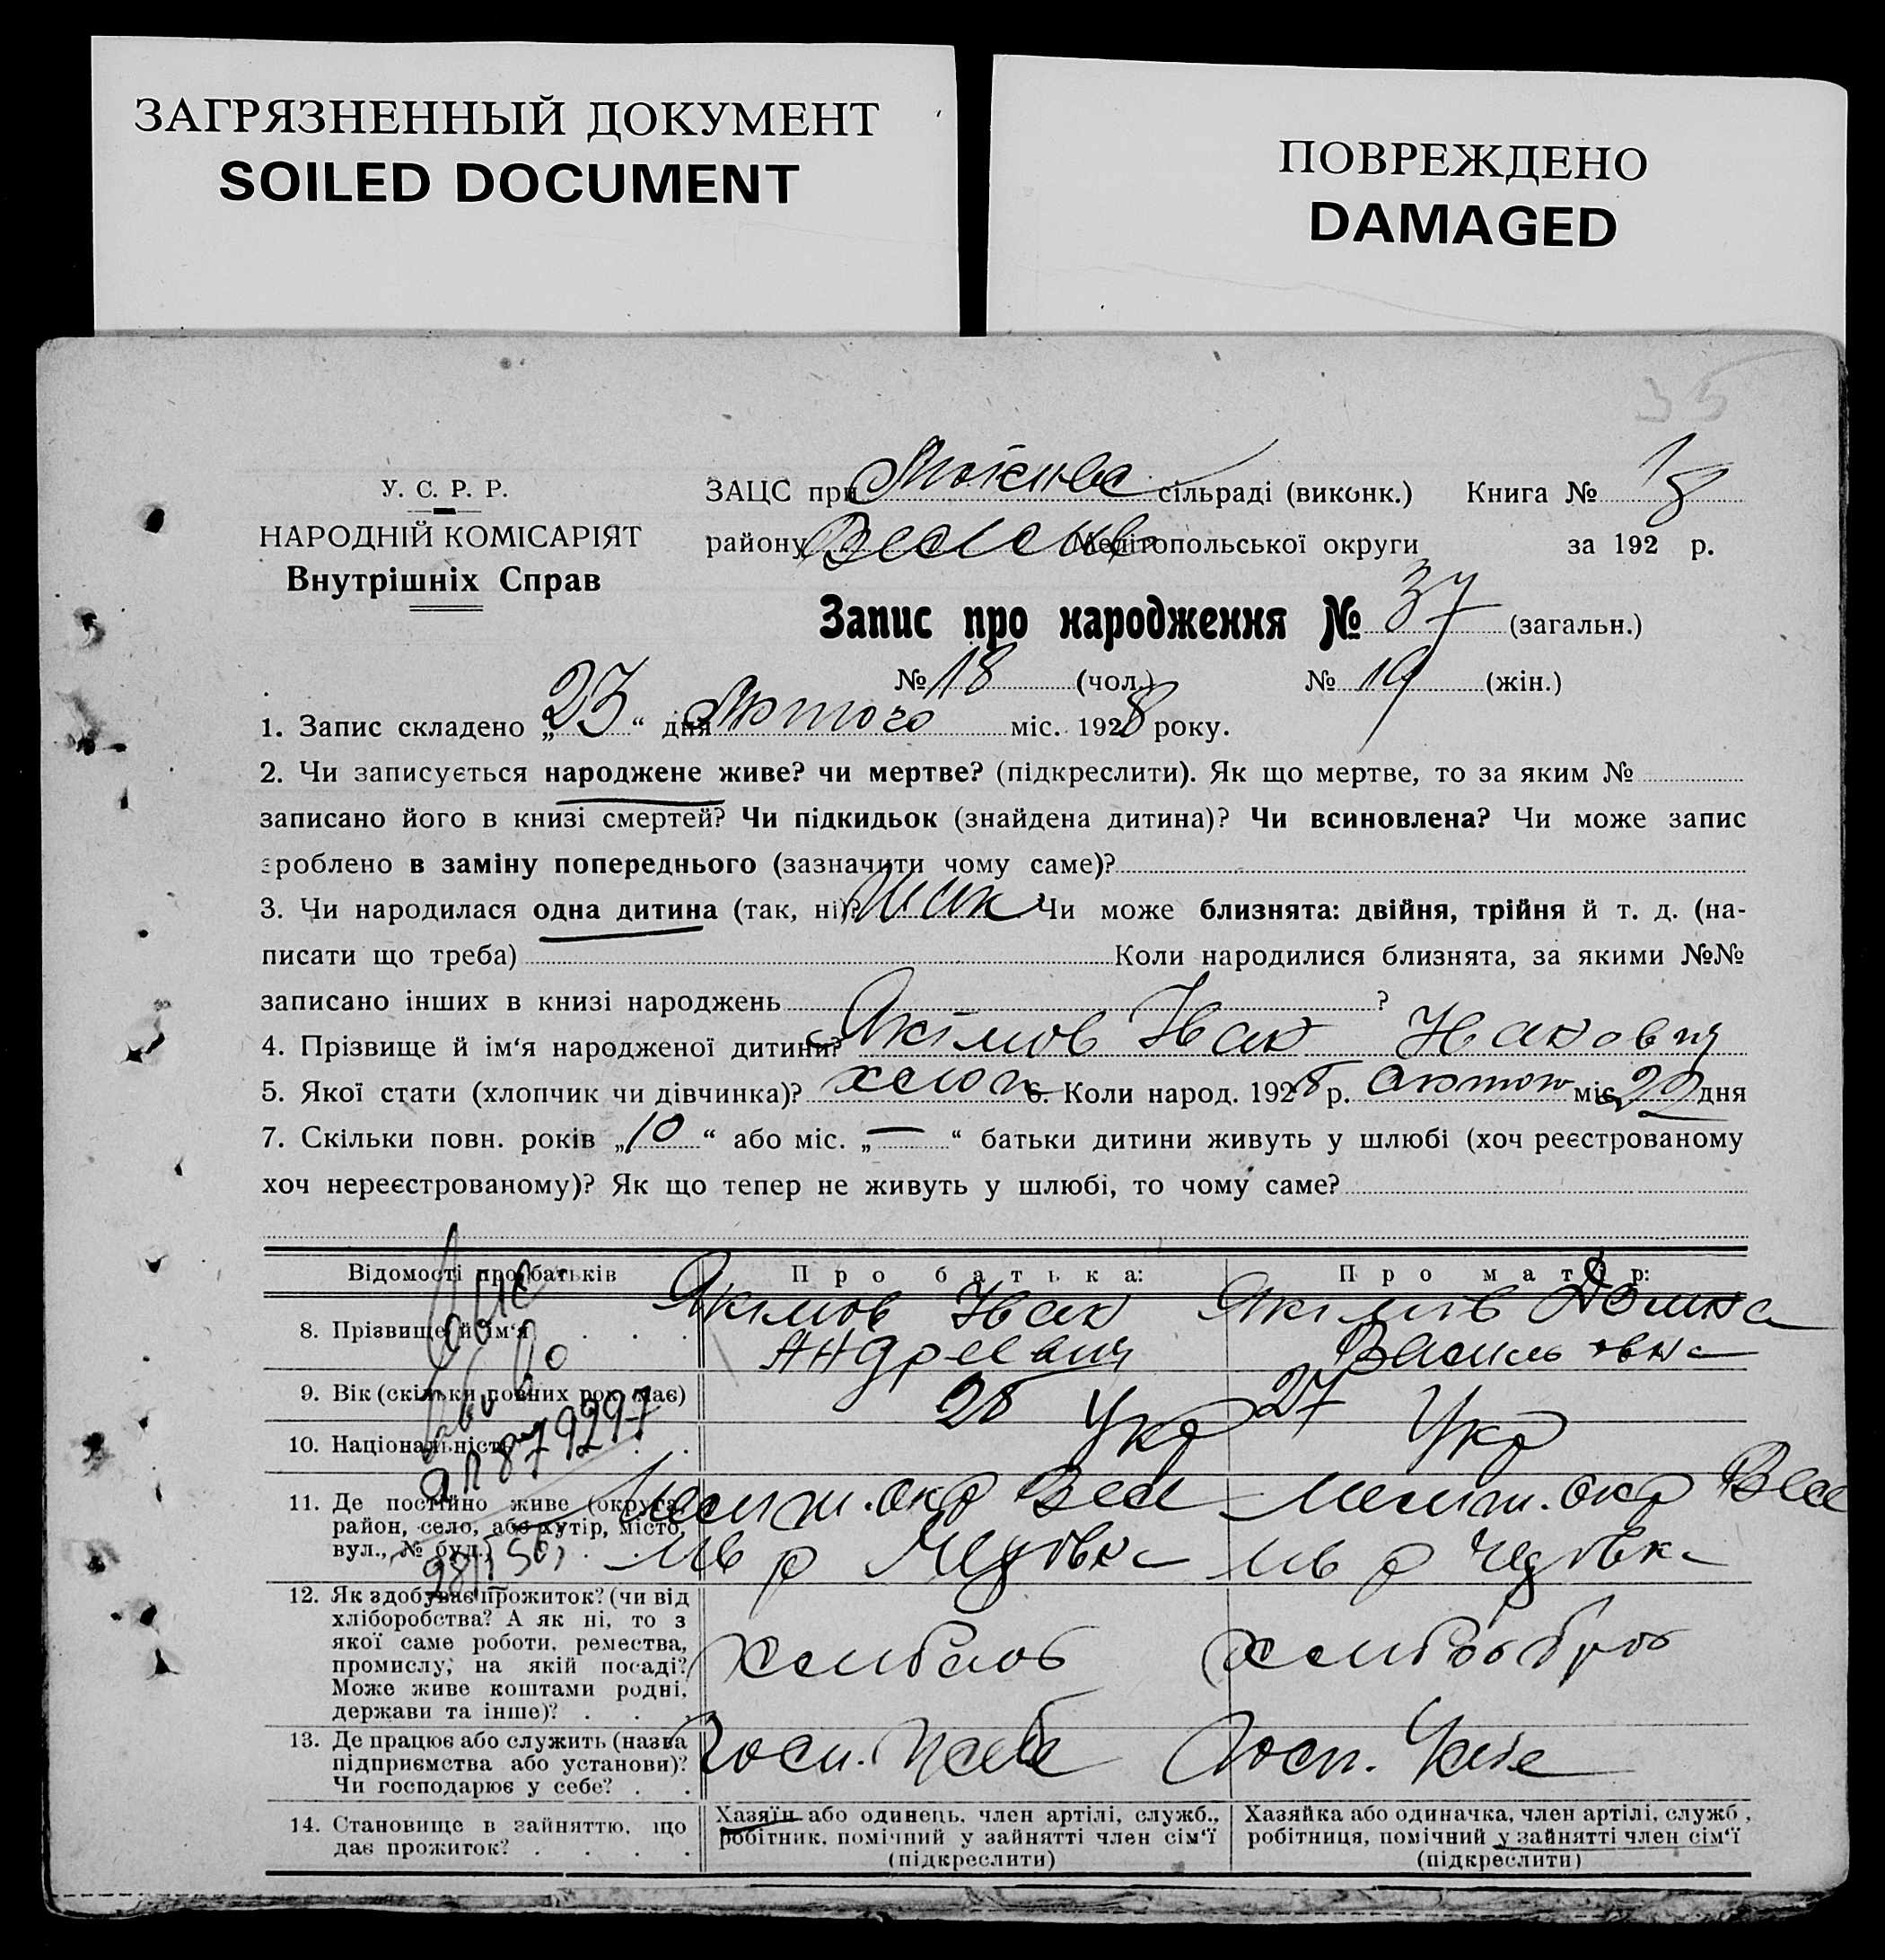 ЗАГРЯЗНЕННЫЙ ДОКУМЕНТ
SOILED DOCUMENT
ПОВРЕЖДЕНО
DAMAGED
35
У. С. Р. Р.
НАРОДНІЙ КОМІСАРІЯТ
Внутрішніх Справ
ЗАЦС при сільраді (виконк.) Книга №
району Мелітопольської округи за 192 р.
Запис про народження № 37 (загальн.)
№ 18 (чол.) № 19 (жін.)
1. Запис складено „23“ дня Лютого міс. 1928 року.
2. Чи записується народжене живе? чи мертве? (підкреслити). Як що мертве, то за яким №
записано його в книзі смертей? Чи підкидьок (знайдена дитина)? Чи всиновлена? Чи може запис
зроблено в заміну попереднього (зазначити чому саме)?
3. Чи народилася одна дитина (так, ні)? так Чи може близнята: двійня, трійня й т. д. (на-
писати що треба) Коли народилися близнята, за якими №№
записано інших в книзі народжень ?
4. Прізвище й ім‘я народженої дитини? Якімов Іван Іванович
5. Якої стати (хлопчик чи дівчинка)? хлоп 6. Коли народ. 1928 р. Лютого міс. 22 дня
7. Скільки повн. років „10“ або міс. „—“ батьки дитини живуть у шлюбі (хоч реєстрованому
хоч нереєстрованому)? Як що тепер не живуть у шлюбі, то чому саме?
Відомості про батьків Про батька: Про матір:
8. Прізвище й ім‘я Якімов Іван Якімов
Андреевич Васильовна
9. Вік (скільки повних рок. має) 28 27
10. Національність Укр Укр
879297
11. Де постійно живе (округа,
район, село, або хутір, місто,
вул., № буд.)
Меліт. окр Весе Меліт. окр Весе
12. Як здобуває прожиток? (чи від
хліборобства? А як ні, то з
якої саме роботи, ремества,
промислу, на якій посаді?
Може живе коштами родні,
держави та інше)?
13. Де працює або служить (назва
підприємства або установи)?
Чи господарює у себе?
Госп. У себе Госп. У себе
14. Становище в зайняттю, що
дає прожиток?
Хазяїн або одинець, член артілі, служб.,
робітник, помічний у зайнятті член сім‘ї
(підкреслити)
Хазяйка або одиначка, член артілі, служб,
робітниця, помічний у зайнятті член сім‘ї
(підкреслити)